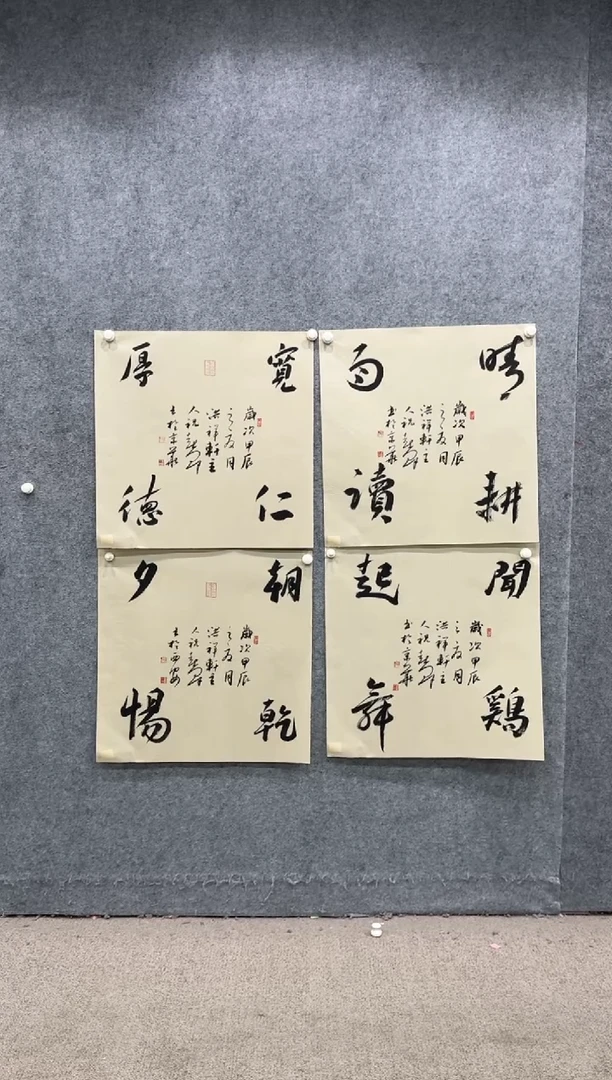 晴耕
雨讀
歲次甲辰
之夏月
洪祥軒主
人祝
書於京華
寬仁
厚德
歲次甲辰
之夏月
洪祥軒主
人祝
書於京華
聞鶏
起舞
歲次甲辰
之夏月
洪祥軒主
人祝
書於京華
朝乾
夕惕
歲次甲辰
之夏月
洪祥軒主
人祝
書於西安